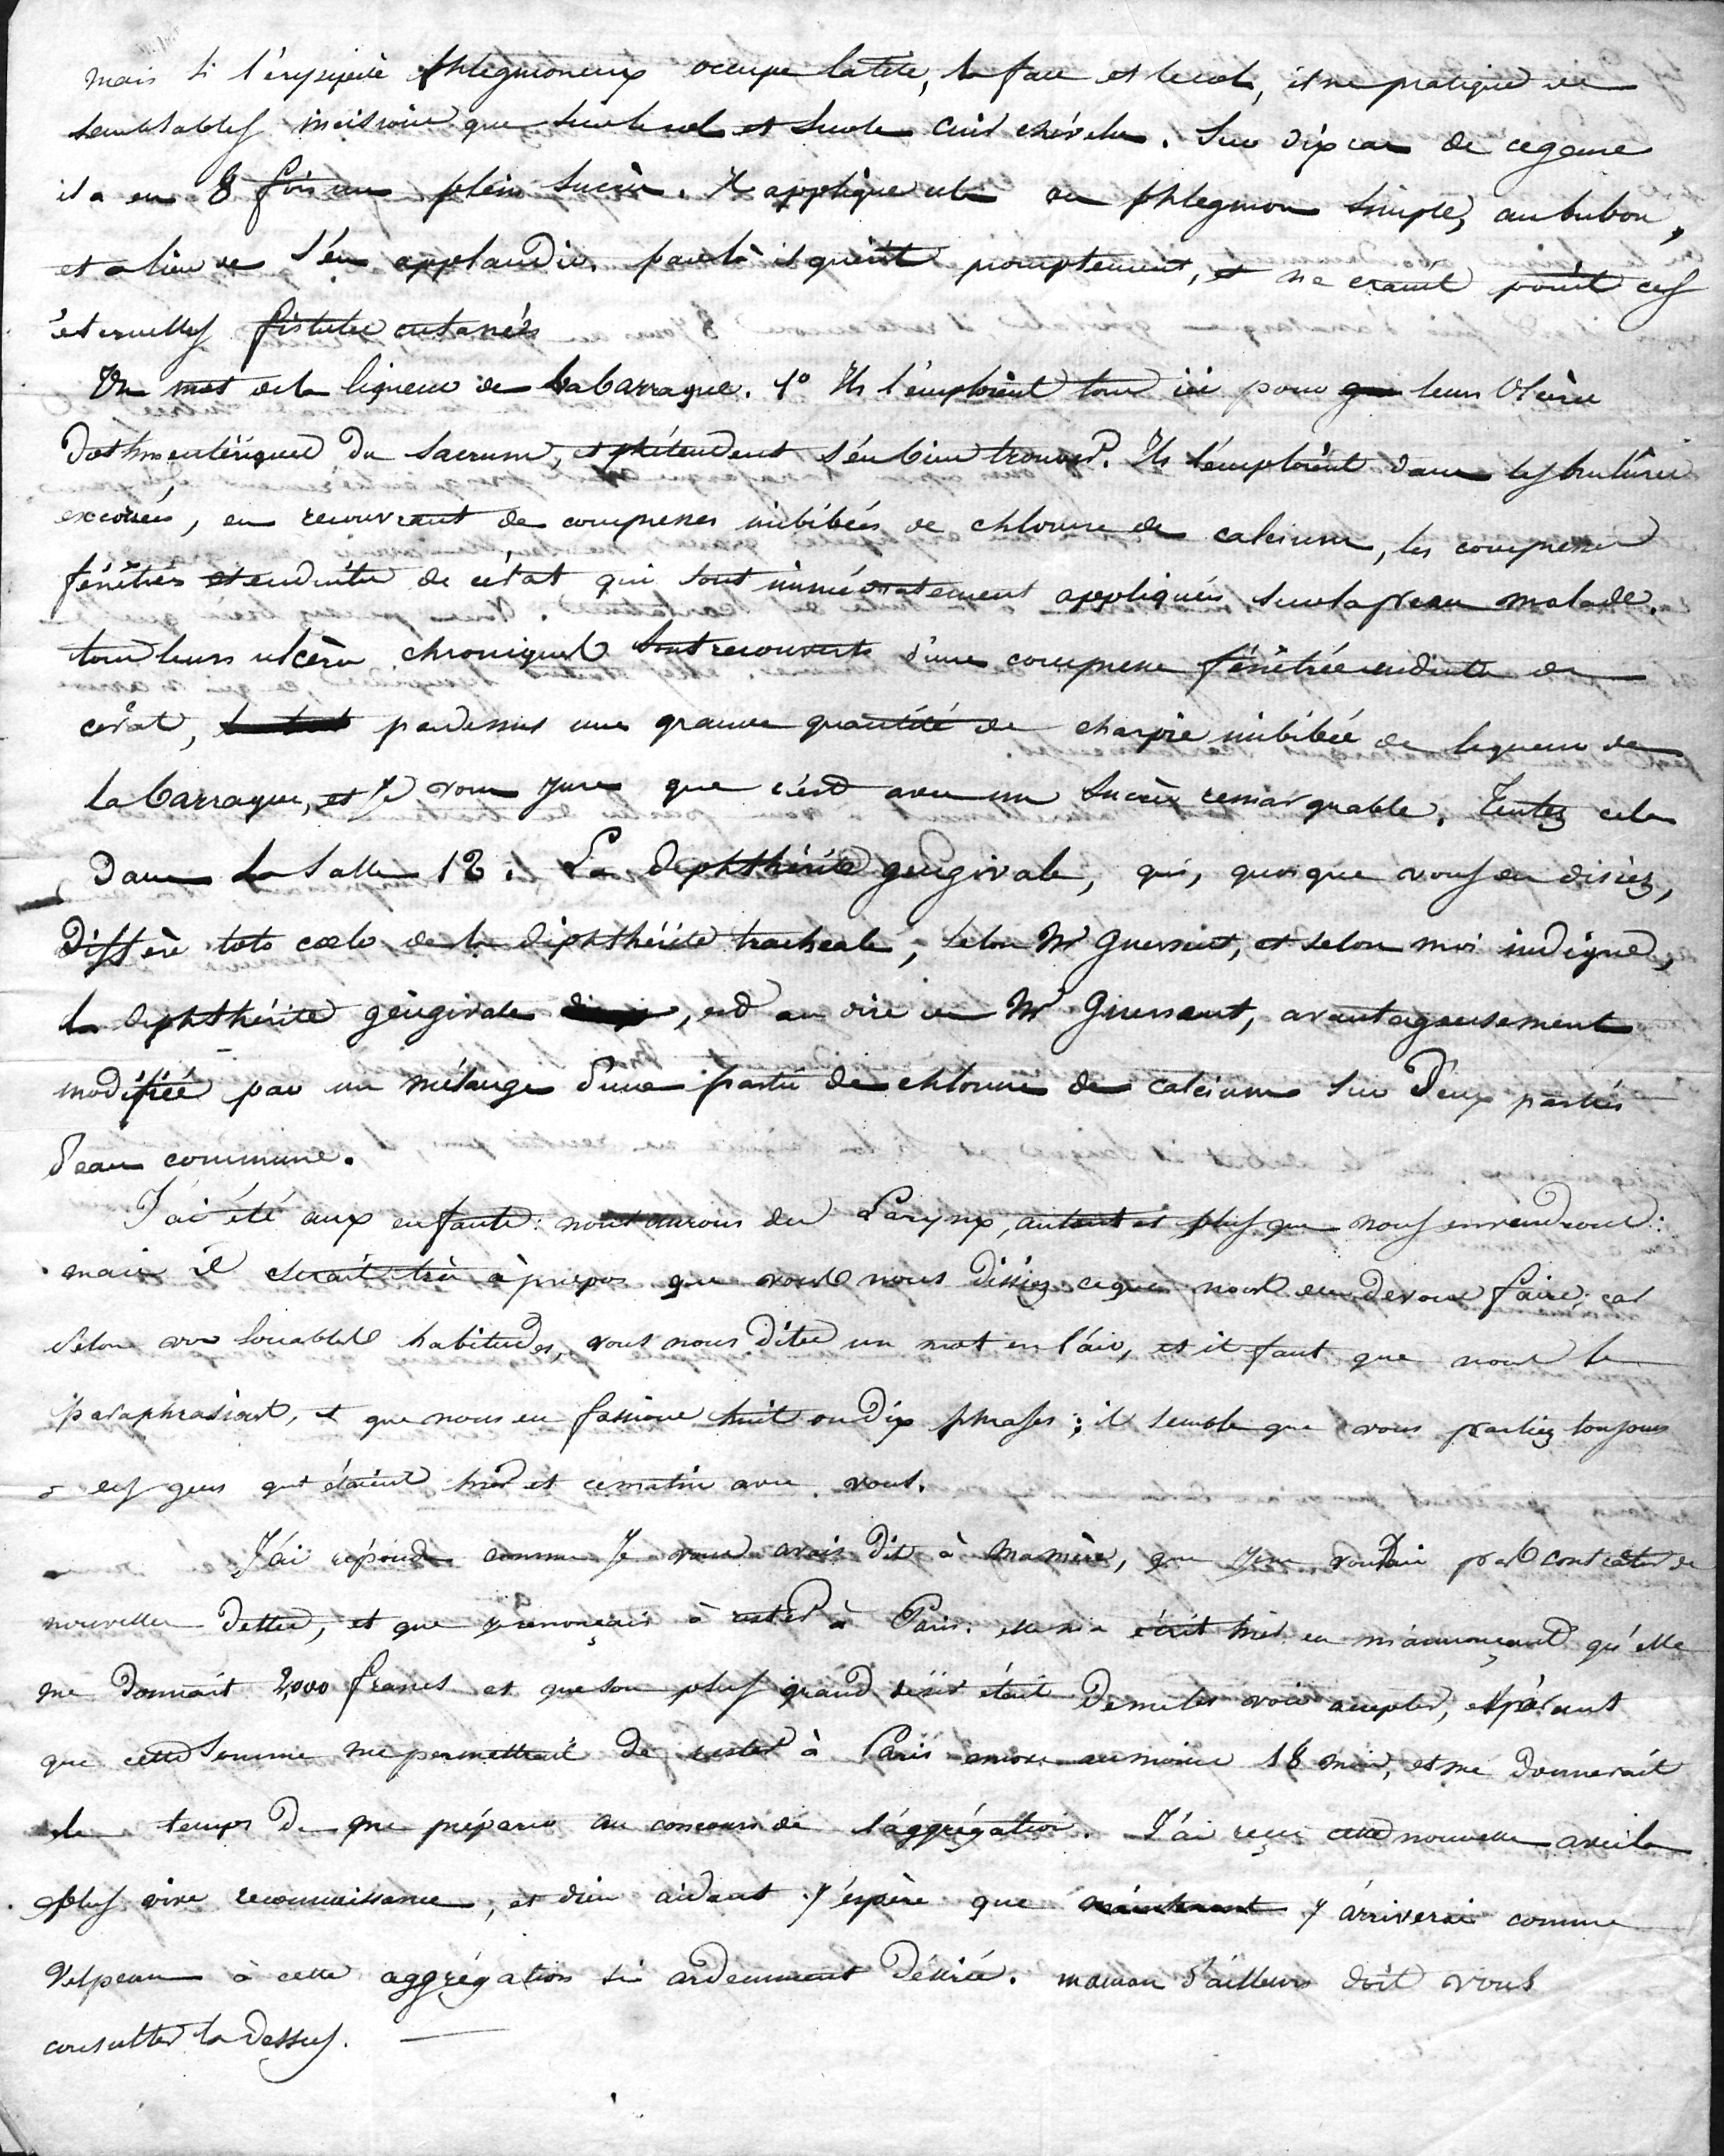 mais si l'érysipèle phlegmoneux occupe la tête, la face et le col, il ne pratique de
semblables incisions que sur le col et sur le cuir chevelu. Sur dix cas de ce genre
il a eu 8 fois un plein succès. Il applique cela au phlegmon simple, au bubon,
et a lieu de s'en applaudir. par là il guérit promptement, et ne craint point ces
éternelles fistules cutanées
Un mot de la liqueur de Labarraque. 1° Ils l'emploient tous ici pour leurs Ulcères
dothinentériques du Sacrum, et prétendent s'en bien trouver. Ils l'emploient dans les brulûres
excoriées, en recouvrant de compresses imbibées de chlorure de calcium, les compresses
fénêtrées et enduites de cérat qui sont immédiatement appliquées sur la peau malade.
tous leurs ulcères chroniques sont recouverts d'une compresse fénêtrée enduite de
cérat, pardessus une grande quantité de charpie imbibée de liqueur de
Labarraque, et je vous jure que c'est avec un succès remarquable. Tentez cela
dans la Salle 12. La diphthérite gengivale, qui, quoique vous en disiez,
Diffère toto cœlo de la diphthérite trachéale, selon Mr Guersent, et selon moi indigne,
la diphthérite gengivale, est au dire de Mr Guersent, avantageusement
modifiée par un mélange d'une partie de chlorure de calcium sur Deux parties
d'eau commune.
J'ai été aux enfants: nous aurons des Larynx, autant et plus que nous en voudrons:
mais il serait très àpropos que vous nous dissiez ce que nous en devons faire; car
selon vos louables habitudes, vous nous dites un mot en l'air, et il faut que nous le
paraphrasions, et que nous en fassions huit ou dix phrases; il semble que vous parliez toujours
à des gens qui étaient hier et ce matin avec vous.
J'ai répondu comme Je vous avais dit à ma mère, que je ne voulais pas contracter de
nouvelles dettes, et que je renonçais à rester à Paris. elle m'a écrit hier en m'annonçant qu'elle
me donnait 2,000 francs et que son plus grand désir était de me les voir accepter, espérant
que cette somme me permettrait de rester à Paris encore au moins 18 mois, et me donnerait
le temps de me préparer au concours de l'aggrégation. J'ai reçu cette nouvelle avec la
plus vive reconnaissance, et dieu aidant j'espère que j'arriverai comme
Velpeau à cette aggrégation si ardemment désirée. maman d'ailleurs doit vous
consulter la dessus.